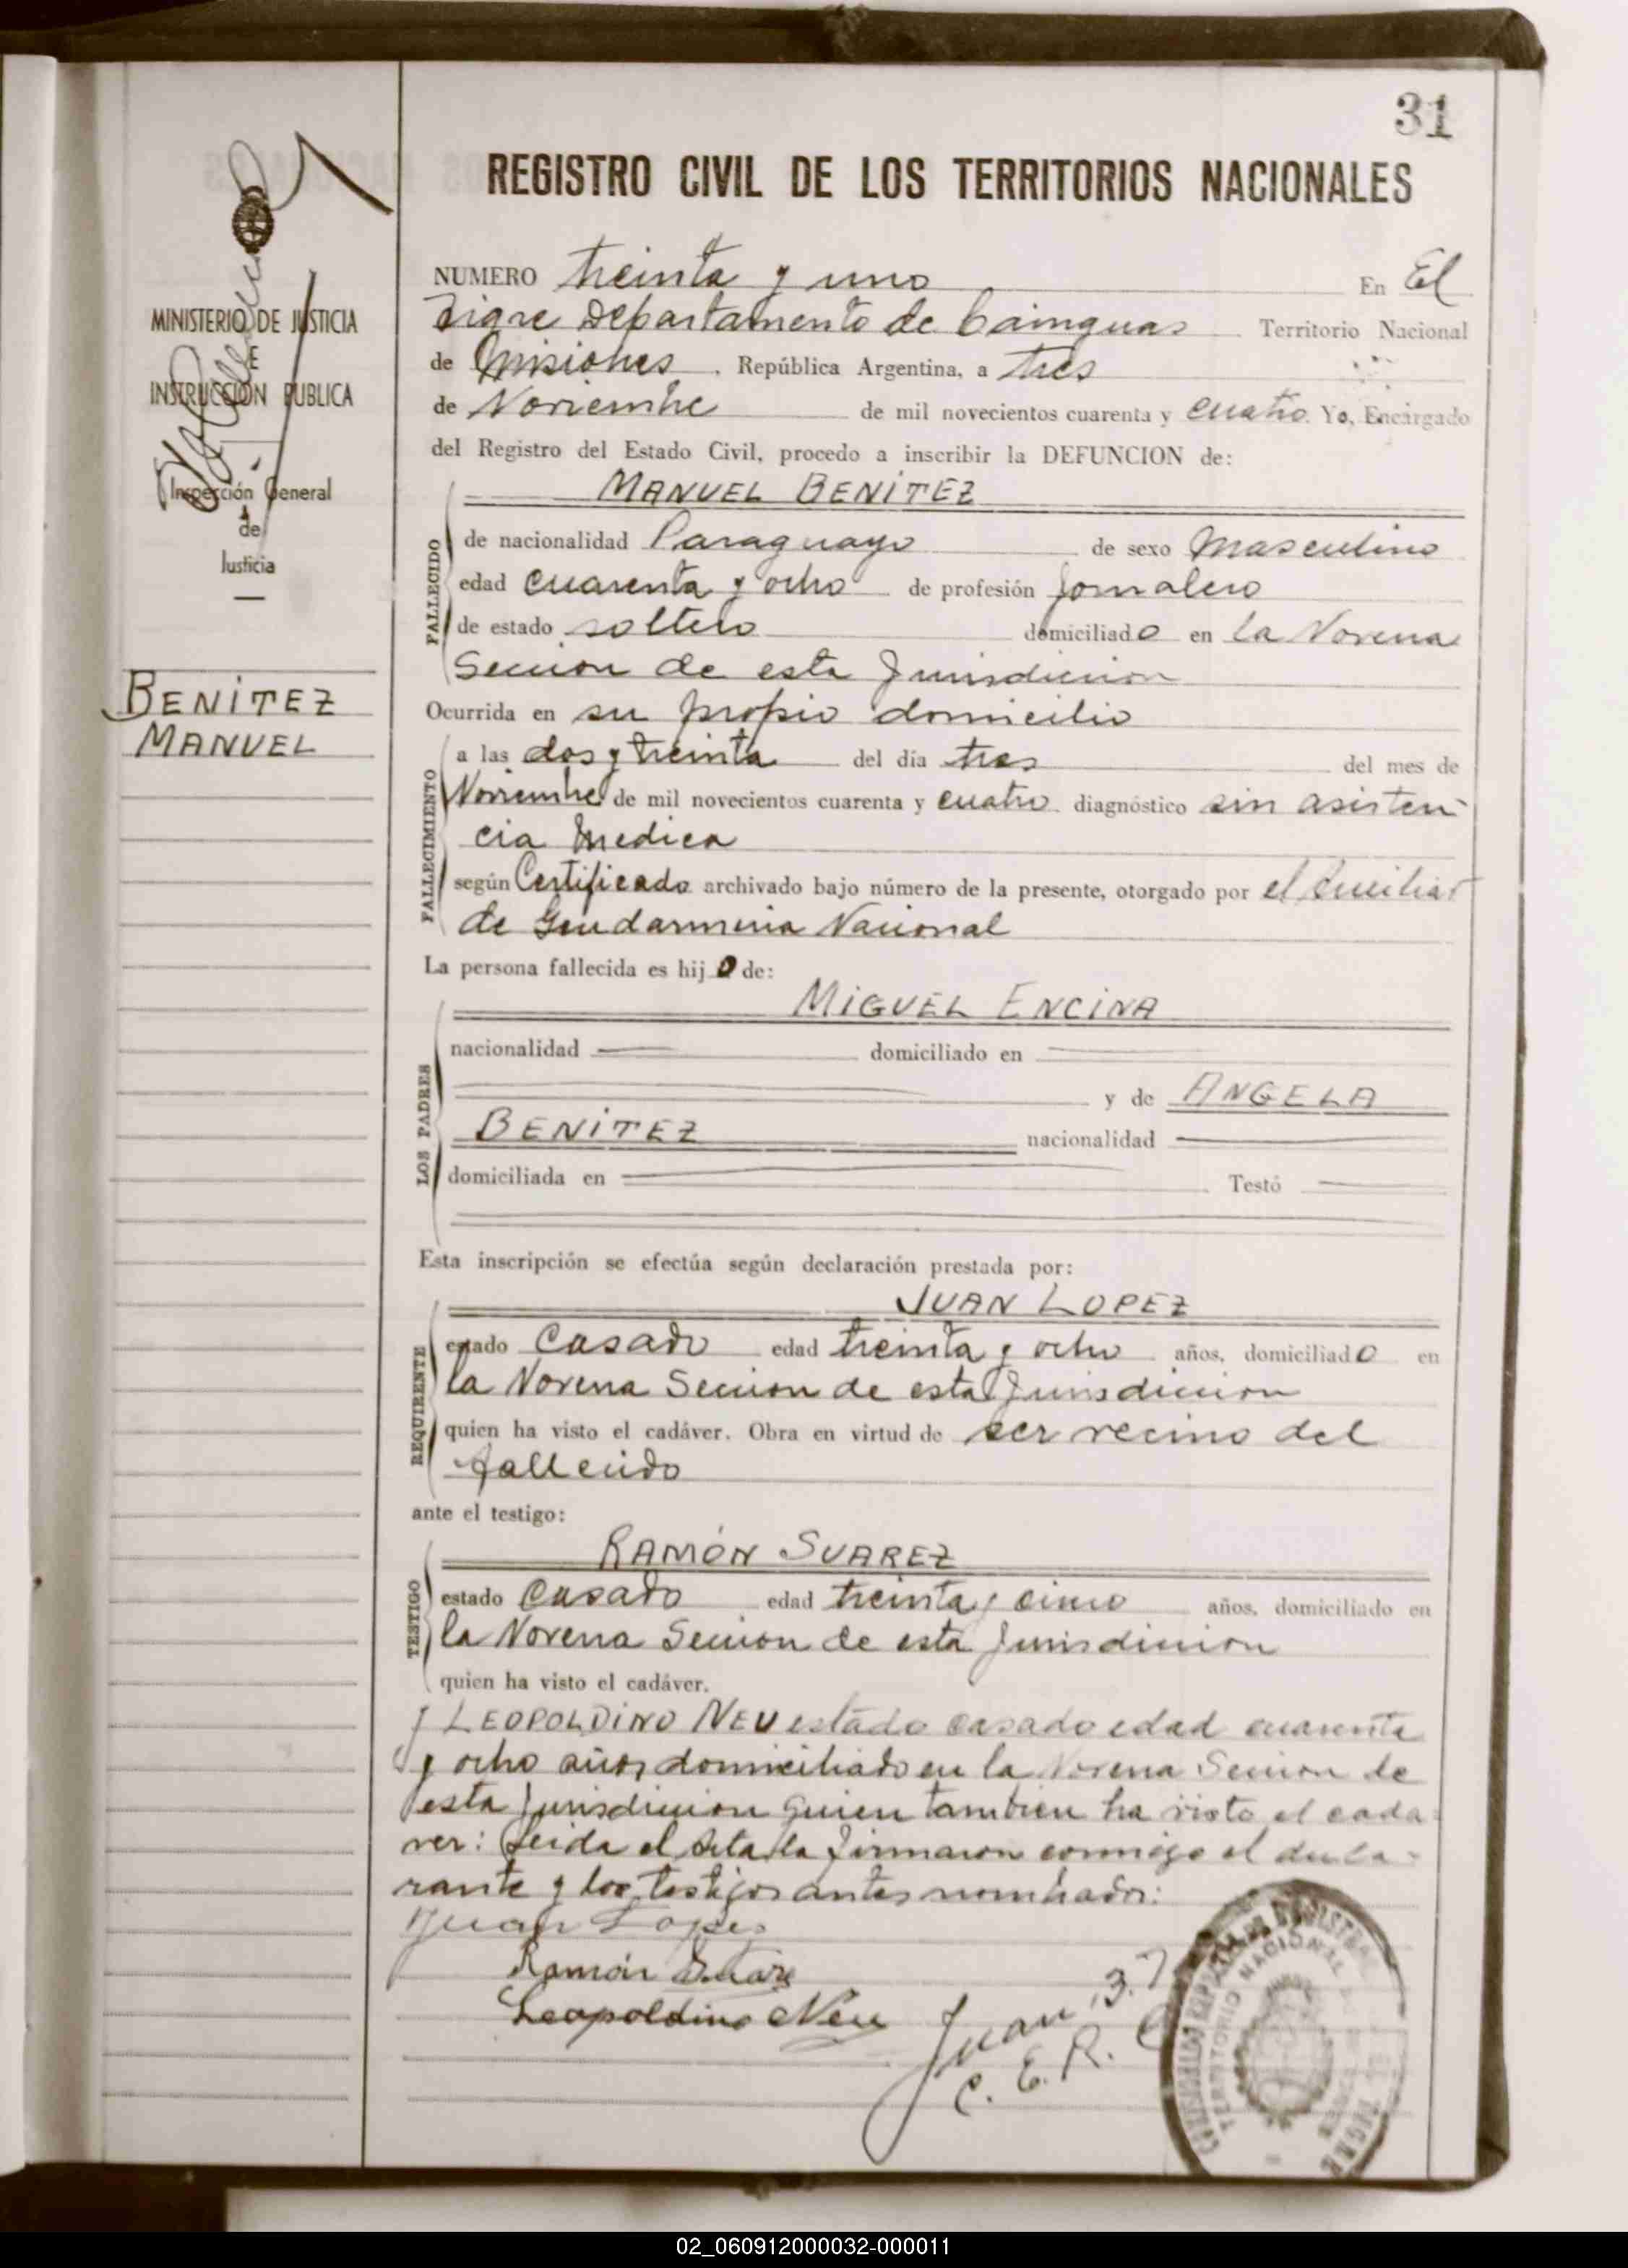 31
REGISTRO CIVIL DE LOS TERRITORIOS NACIONALES
MINISTERIO DE JUSTICIA
E
INSTRUCCIÓN PUBLICA
Inspección General
de
Justicia
BENITEZ
MANUEL
NUMERO treinta y uno En El
Tigre Departamento de Cainguas Territorio Nacional
de Misiones, República Argentina, a tres
de Noviembre de mil novecientos cuarenta y cuatro. Yo, Encargado
del Registro del Estado Civil, procedo a inscribir la DEFUNCION de:
MANUEL BENITEZ
FALLECIDO
de nacionalidad Paraguayo de sexo Masculino
edad cuarenta y ocho de profesión Jornalero
de estado soltero domiciliado en la Novena
Seccion de esta Jurisdiccion
Ocurrida en su propio domicilio
FALLECIMIENTO
a las dos y treinta del día tres del mes de
Noviembre de mil novecientos cuarenta y cuatro diagnóstico sin asisten-
cia Medica
según Certificado archivado bajo número de la presente, otorgado por el Auxiliar
de Gendarmeria Nacional
La persona fallecida es hijo de:
LOS PADRES
MIGUEL ENCINA
nacionalidad domiciliado en
y de ANGELA
BENITEZ nacionalidad
domiciliada en Testó
Esta inscripción se efectúa según declaración prestada por:
REQUIRENTE
JUAN LOPEZ
estado Casado edad treinta y ocho años, domiciliado en
la Novena Seccion de esta Jurisdiccion
quien ha visto el cadáver. Obra en virtud de ser vecino del
fallecido
ante el testigo:
TESTIGO
RAMÓN SUAREZ
estado Casado edad treinta y cinco años, domiciliado en
la Novena Seccion de esta Jurisdiccion
quien ha visto el cadáver.
y LEOPOLDINO NEU estado casado edad cuarenta
y ocho años domiciliado en la Novena Seccion de
esta Jurisdiccion quien tambien ha visto el cada-
ver: Leida el Acta la firmaron conmigo el decla-
rante y los testigos antes nombrados:
Juan Lopez
Ramón Suarez
Leopoldino Neu
Juan
C. E. R. C
TERRITORIO NACIONAL
02_060912000032-000011